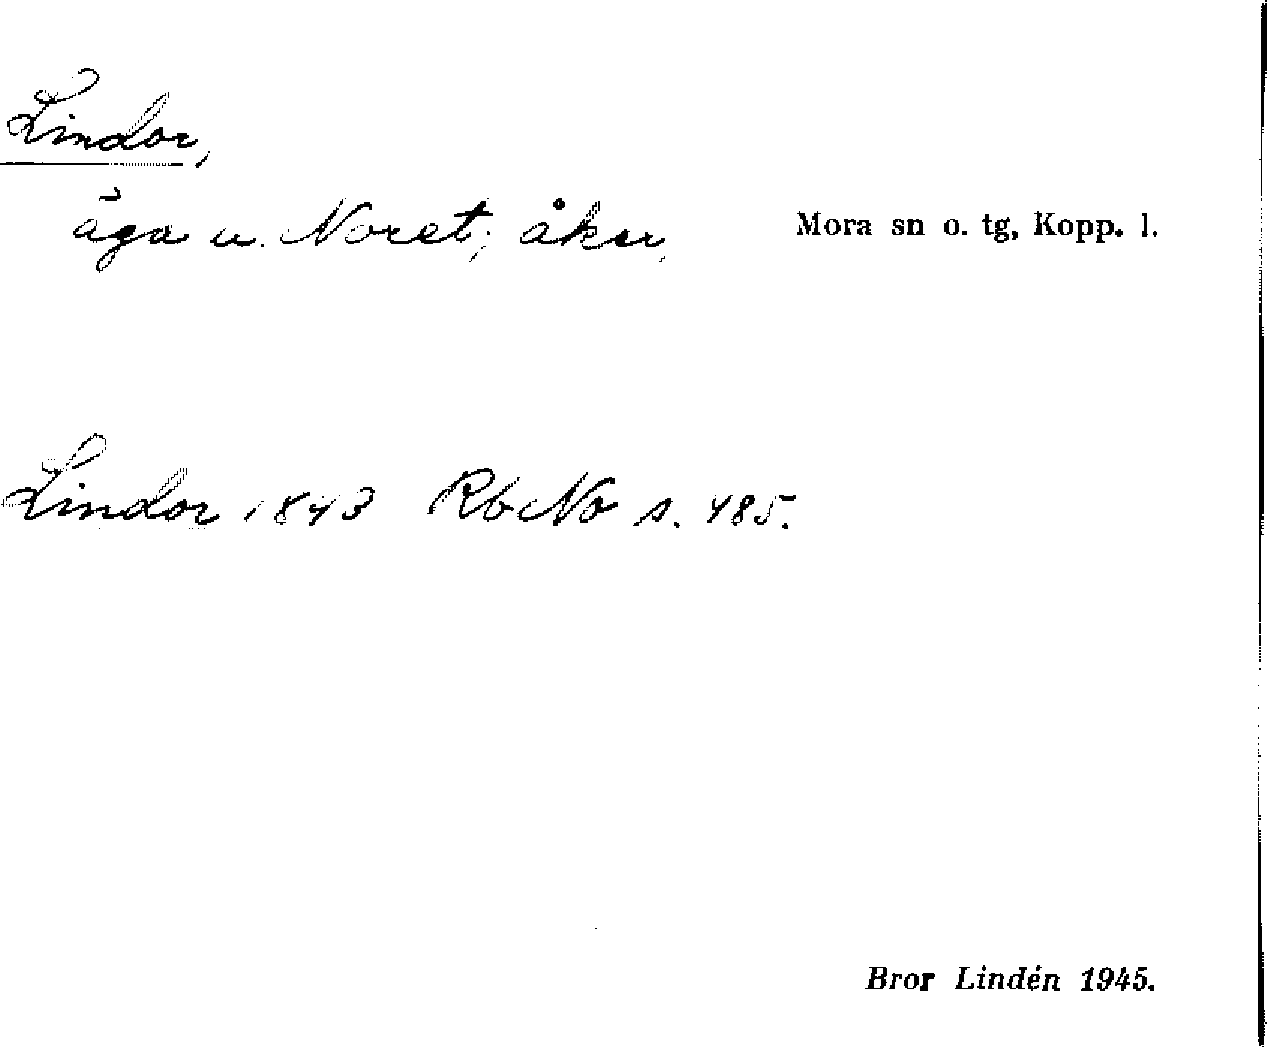 Lindor,
äga u. Noret; åker,
Mora sn o. tg, Kopp. l.
Lindor 1843 RbNo s. 485.
Bror Lindén 1945.